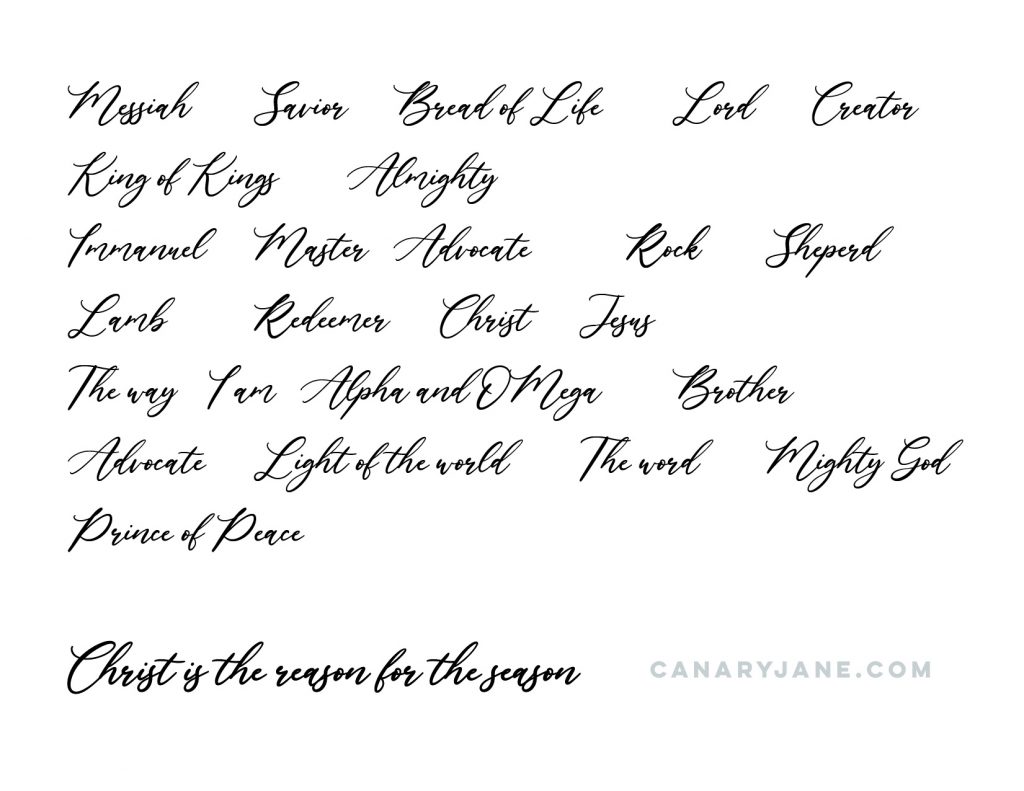 Messiah Savior Bread of Life Lord Creator
King of Kings Almighty
Immanuel Master Advocate Rock Sheperd
Lamb Redeemer Christ Jesus
The way I am Alpha and OMega Brother
Advocate Light of the world The word Mighty God
Prince of Peace
Christ is the reason for the season CANARYJANE.COM